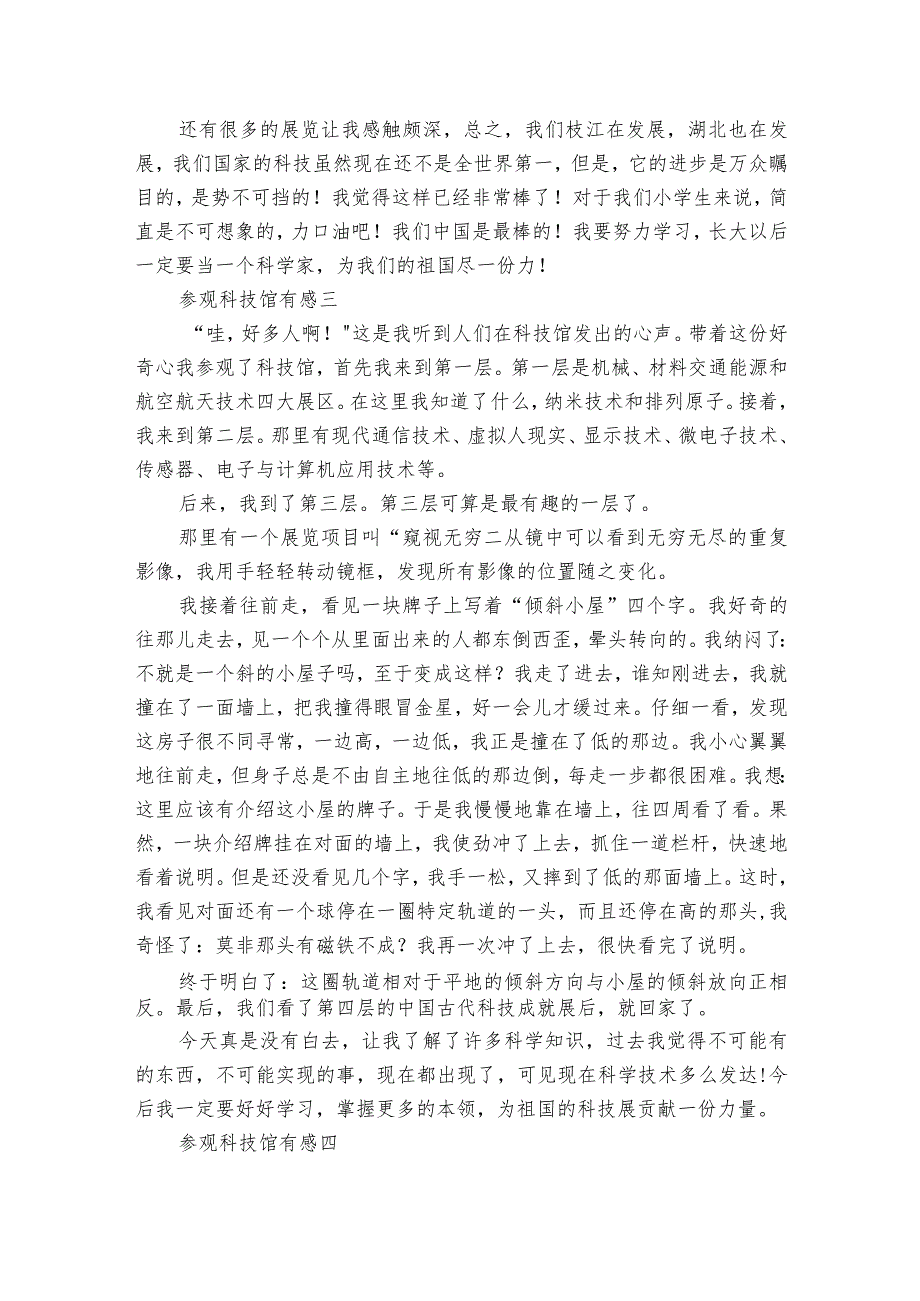 还有很多的展览让我感触颇深，总之，我们枝江在发展，湖北也在发
展，我们国家的科技虽然现在还不是全世界第一，但是，它的进步是万众瞩
目的，是势不可挡的！我觉得这样已经非常棒了！对于我们小学生来说，简
直是不可想象的，力口油吧！我们中国是最棒的！我要努力学习，长大以后
一定要当一个科学家，为我们的祖国尽一份力！
参观科技馆有感三
“哇，好多人啊！"这是我听到人们在科技馆发出的心声。带着这份好
奇心我参观了科技馆，首先我来到第一层。第一层是机械、材料交通能源和
航空航天技术四大展区。在这里我知道了什么，纳米技术和排列原子。接着，
我来到第二层。那里有现代通信技术、虚拟人现实、显示技术、微电子技术、
传感器、电子与计算机应用技术等。
后来，我到了第三层。第三层可算是最有趣的一层了。
那里有一个展览项目叫“窥视无穷二从镜中可以看到无穷无尽的重复
影像，我用手轻轻转动镜框，发现所有影像的位置随之变化。
我接着往前走，看见一块牌子上写着“倾斜小屋”四个字。我好奇的
往那儿走去，见一个个从里面出来的人都东倒西歪，晕头转向的。我纳闷了：
不就是一个斜的小屋子吗，至于变成这样？我走了进去，谁知刚进去，我就
撞在了一面墙上，把我撞得眼冒金星，好一会儿才缓过来。仔细一看，发现
这房子很不同寻常，一边高，一边低，我正是撞在了低的那边。我小心翼翼
地往前走，但身子总是不由自主地往低的那边倒，每走一步都很困难。我想：
这里应该有介绍这小屋的牌子。于是我慢慢地靠在墙上，往四周看了看。果
然，一块介绍牌挂在对面的墙上，我使劲冲了上去，抓住一道栏杆，快速地
看着说明。但是还没看见几个字，我手一松，又摔到了低的那面墙上。这时，
我看见对面还有一个球停在一圈特定轨道的一头，而且还停在高的那头,我
奇怪了：莫非那头有磁铁不成？我再一次冲了上去，很快看完了说明。
终于明白了：这圈轨道相对于平地的倾斜方向与小屋的倾斜放向正相
反。最后，我们看了第四层的中国古代科技成就展后，就回家了。
今天真是没有白去，让我了解了许多科学知识，过去我觉得不可能有
的东西，不可能实现的事，现在都出现了，可见现在科学技术多么发达!今
后我一定要好好学习，掌握更多的本领，为祖国的科技展贡献一份力量。
参观科技馆有感四